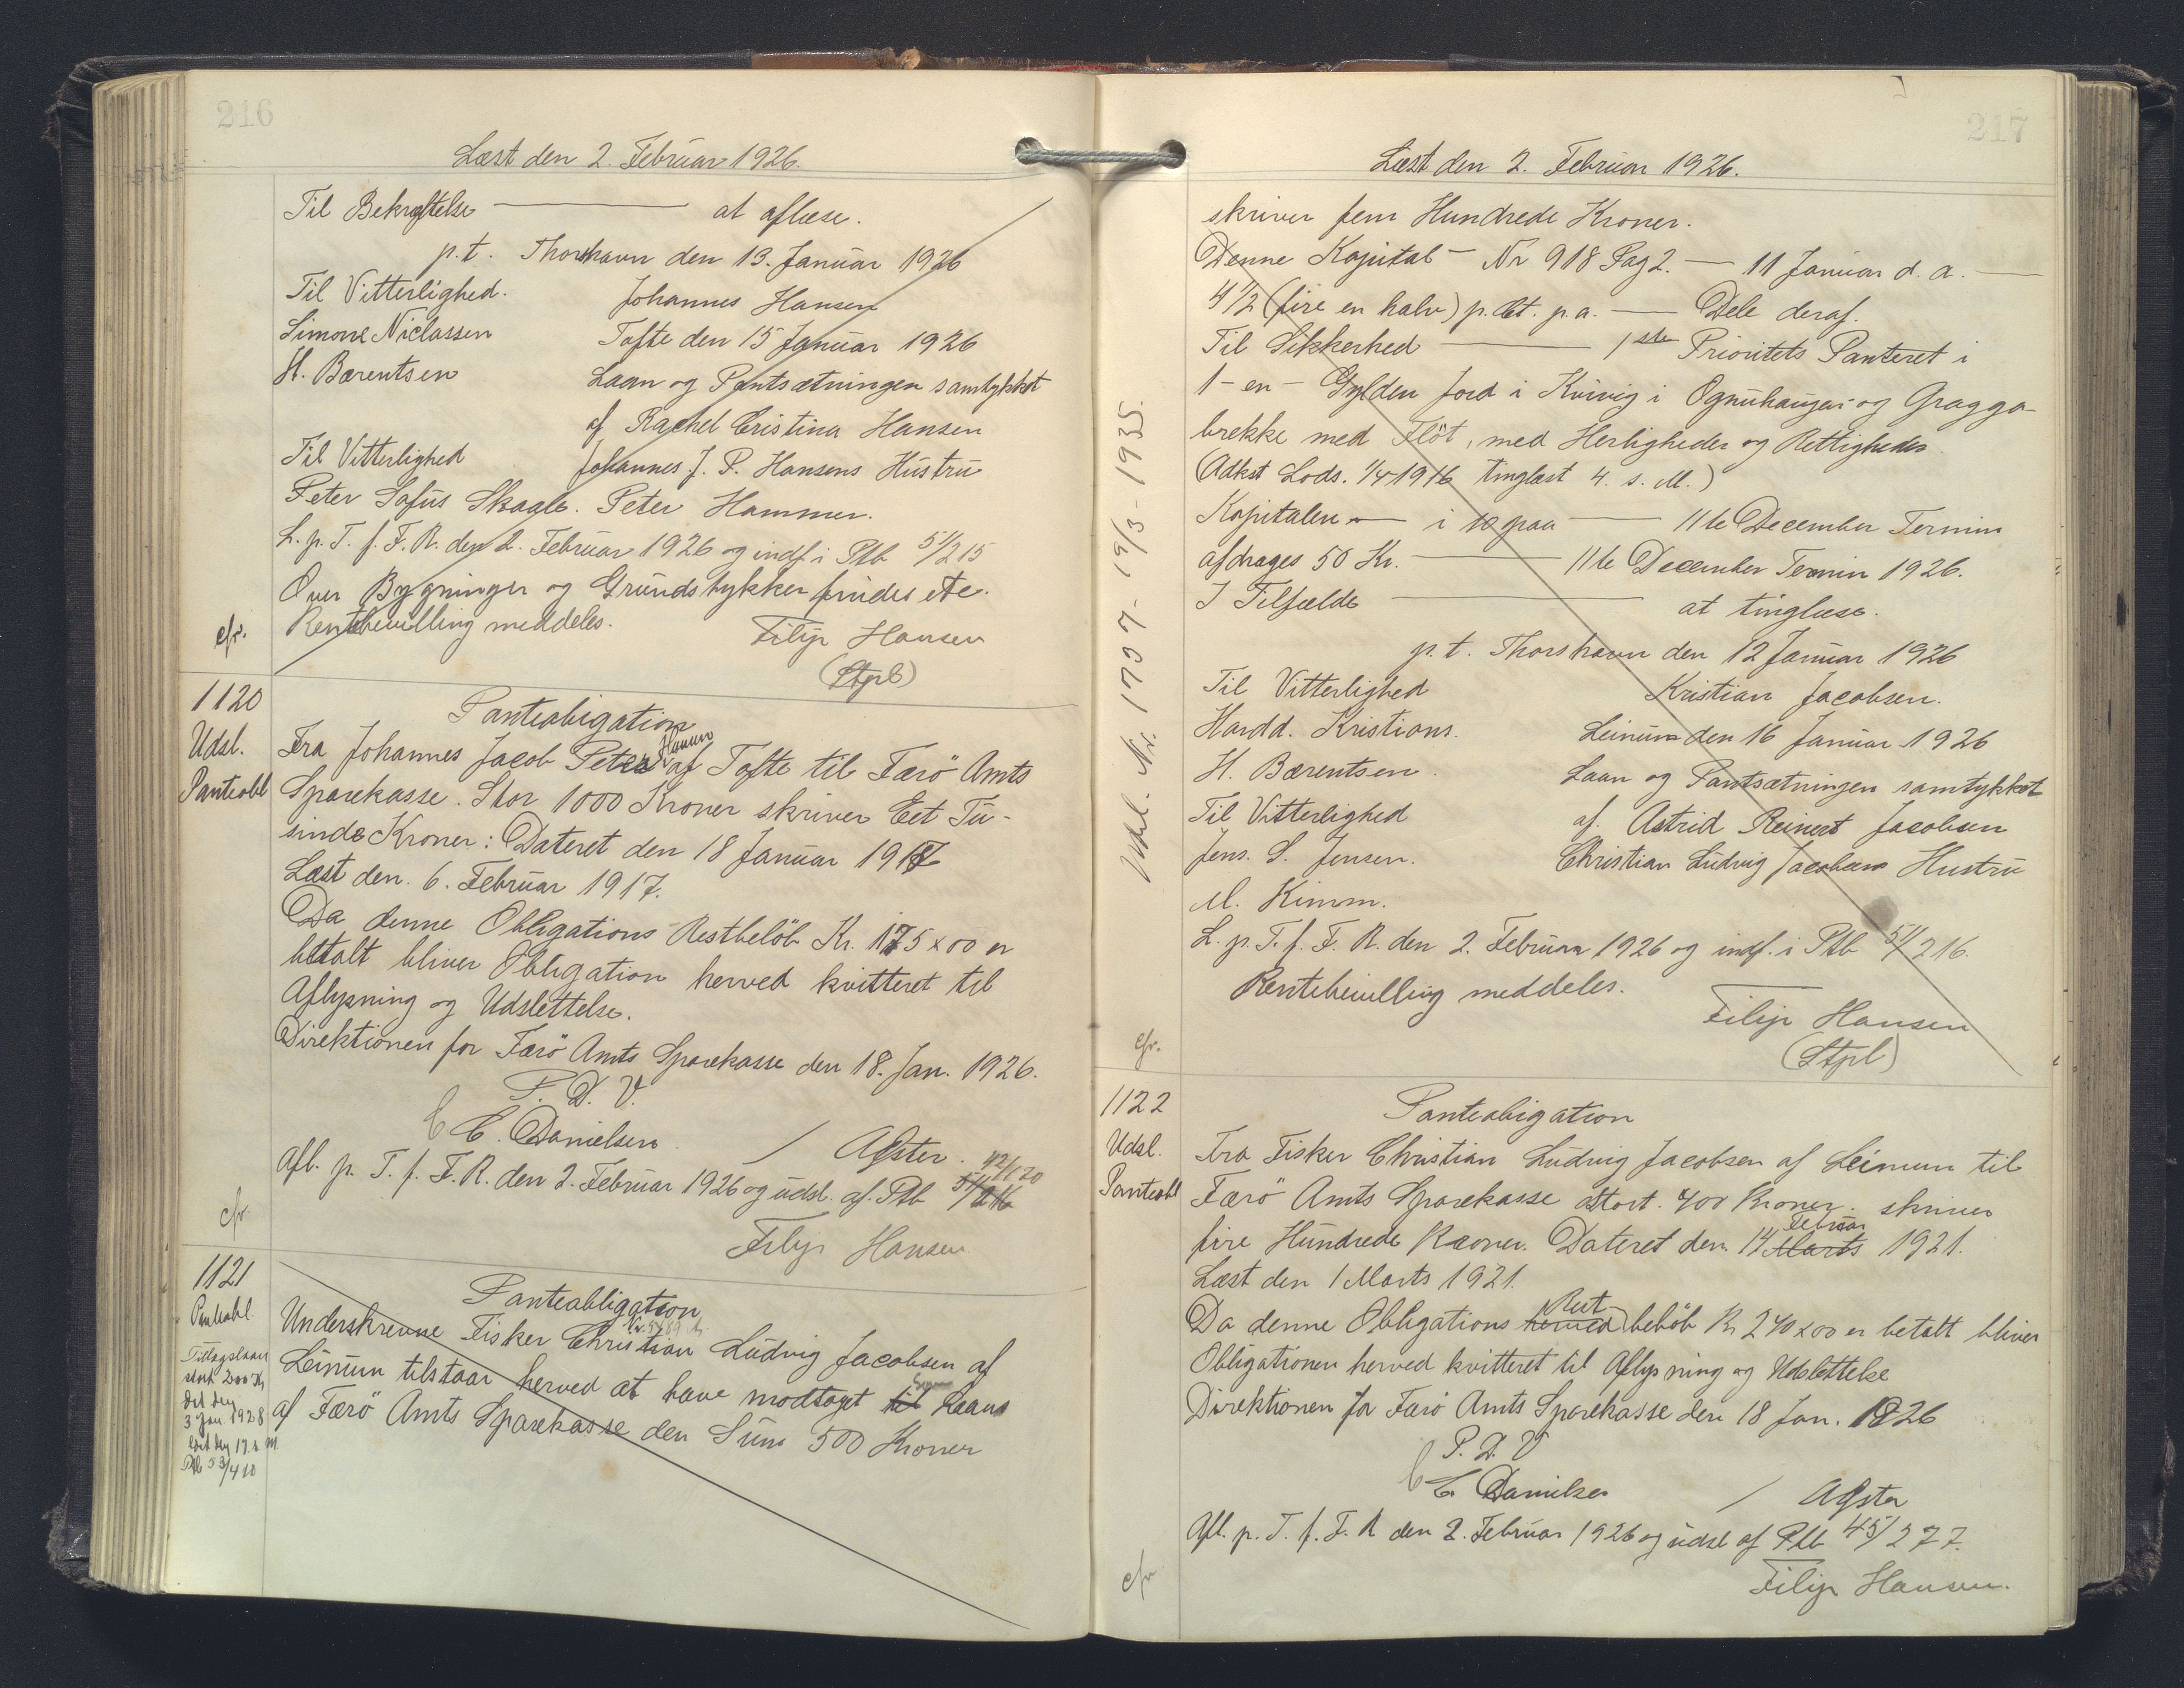 216
Læst den 2. Februar 1926.
Til Bekræftelse — at aflæse.
p.t. Thorshavn den 13. Januar 1926
Til Vitterlighed. Johannes Hansen
Simone Niclassen Tofte den 15 Januar 1926
H. Bærentsen Laan og Pantsætningen samtykket
af Rachel Cristina Hansen
Til Vitterlighed Johannes J. P. Hansens Hustru
Peter Sofus Skaale. Peter Hammer.
L. p. T. f. F. R. den 2. Februar 1926 og indf. i Ptb 51/215
Over Bygninger og Grundstykker findes etc.
cfr. Rentebevilling meddeles. Filip Hansen
(Stpl)
1120
Udsl.
Panteobl
Panteobligation
Fra Johannes Jacob Peter Hansen af Tofte til Færö Amts
Sparekasse. Stor 1000 Kroner skriver Eet Tu-
sinde Kroner: Dateret den 18 Januar 1917
Læst den. 6. Februar 1917.
Da denne Obligations Restbelöb Kr. 175 x 00 er
betalt bliver Obligation herved kvitteret til
Aflysning og Udslettelse.
Direktionen for Færö Amts Sparekasse den 18. Jan. 1926.
P. D. V.
C. Danielsen / Agster.
Afl. p. T. f. F. R. den 2. Februar 1926 og udsl. af. Ptb 51/216 42/120
cfr.
Filip Hansen
1121
Panteobl.
Tillægslaan
stort 200 Kr
dat den
3 Jan 1928
læst den 17. s. M.
Ptb 53/410
Panteobligation
Underskrevne Fisker Christian Ludvig Jacobsen af
Leinum tilstaar herved at have modtaget til Laans
af Færö Amts Sparekasse den Sum 500 Kroner
217
Læst den 2. Februar 1926.
skriver fem Hundrede Kroner.
Denne Kapital – Nr 918 Pag 2. – 11 Januar d. a. —
4 1/2 (fire en halv) p. Ct. p. a. — Dele deraf.
Til Sikkerhed — 1ste Prioritets Panteret i
1 – en – Gylden Jord i Kvivig i Ognuhaugar og Gragga-
brekke med Flöt, med Herligheder og Rettigheder
(Adkst Lods. 1/4 1916 tinglæst 4. s. M.)
Kapitalen — i 10 paa — 11te December Termin
afdrages 50 Kr. — 11te December Termin 1926.
I Tilfælde — at tinglæse.
p. t. Thorshavn den 12 Januar 1926
Til Vitterlighed Kristian Jacobsen.
Hardd. Kristians. Leinum den 16 Januar 1926
H. Bærentsen. Laan og Pantsætningen samtykket
Til Vitterlighed af Astrid Reinert Jacobsen
Jens. S. Jensen. Christian Ludvig Jacobsens Hustru
M. Kimm.
L. p. T. f. F. R. den 2. Februar 1926 og indf. i Ptb 51/216.
Rentebevilling meddeles.
Filip Hansen
cfr.
(Stpl)
Udsl. Nr. 1707 - 19/3 - 1935.
1122
Udsl.
Panteobl
Panteobligation
Fra Fisker Christian Ludvig Jacobsen af Leinum til
Færö Amts Sparekasse stort. 400 Kroner. skriver
fire Hundrede Kroner. Dateret den 14 Marts Februar 1921.
Læst den 1 Marts 1921.
Da denne Obligations herved Rest belöb Kr 240 x 00 er betalt bliver
Obligationen herved kvitteret til Aflysning og Udslettelse
Direktionen for Færö Amts Sparekasse den 18 Jan. 1926
P. D. V
C. Danielsen / Agster
Afl. p. T. f. F. R den 2. Februar 1926 og udsl af Ptb 45/277.
cfr
Filip Hansen.